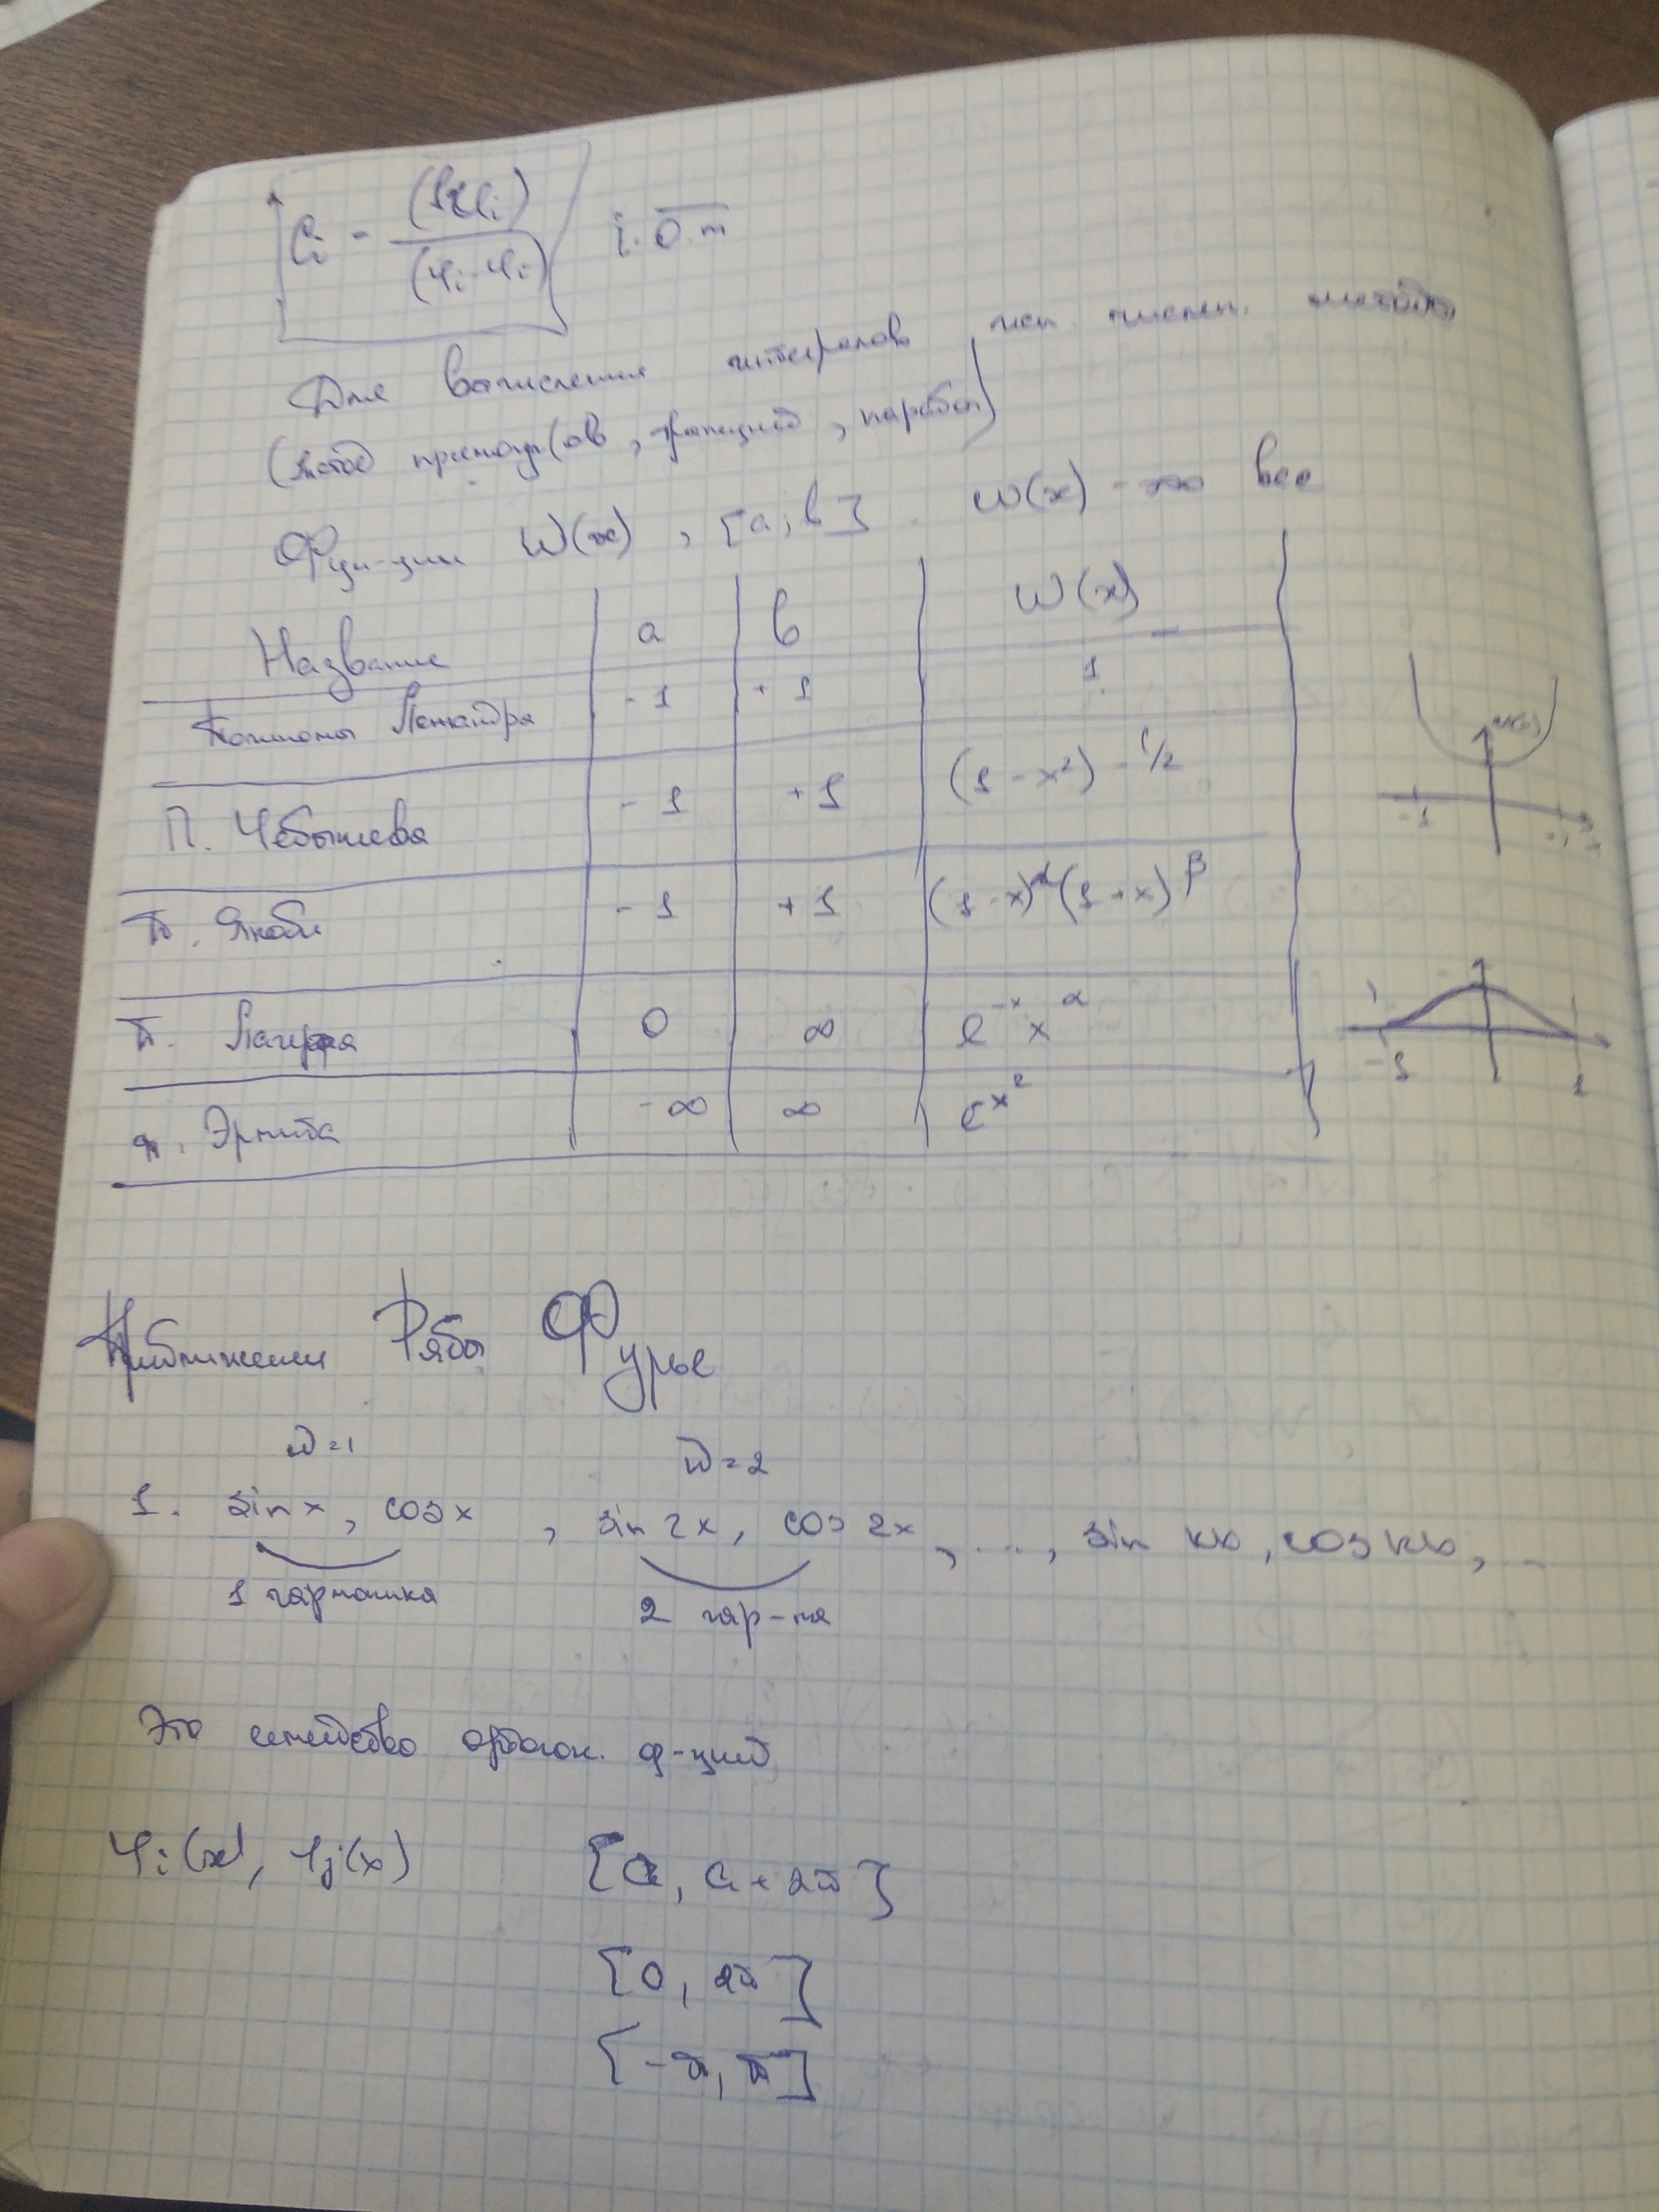 Ci = (f, φi) / (φi, φi)   i = 0, m
Для вычисления интегралов исп. числен. методы
(метод прямоуг(ов, трапеций, парабол)
Фун-ции W(x), [a; b]. W(x) - это вес
Название | a | b | W(x)
Полиномы Лежандра | -1 | +1 | 1
П. Чебышева | -1 | +1 | (1 - x²) - 1/2
П. Якоби | -1 | +1 | (1 - x)^α (1 + x)^β
П. Лагерра | 0 | ∞ | e^-x x^α
П. Эрмита | -∞ | ∞ | e^x²
-1
-1 1
Приближении Ряды Фурье
w=1 w=2
1. sin x, cos x, sin 2x, cos 2x, ..., sin kx, cos kx, ...
1 гармоника 2 гар-ка
Это семейство ортогон. ф-ций
φi(x), φj(x) [a, a + 2π]
[0, 2π]
[-π, π]